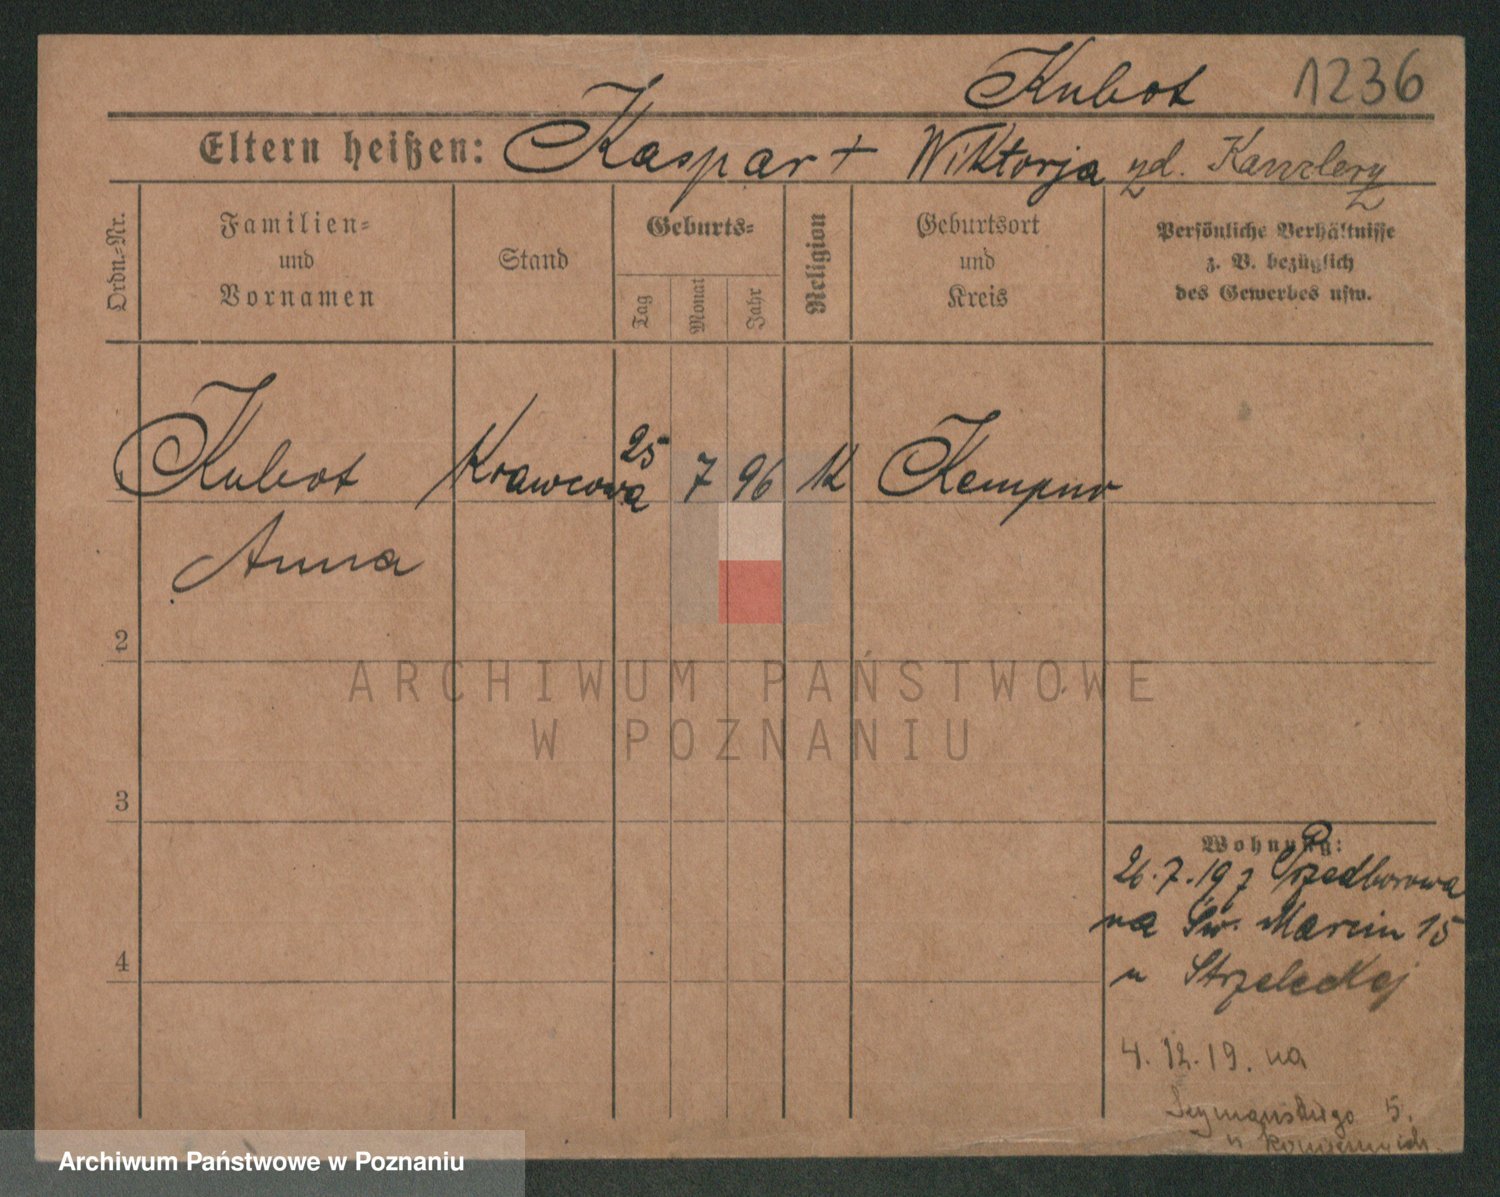 Kubot 1236
Eltern heißen: Kaspar + Wiktorja zd. Kanzlerz
Ordn.-Nr.
Familien-
und
Vornamen
Stand
Geburts-
Tag
Monat
Jahr
Religion
Geburtsort
und
Kreis
Persönliche Verhältnisse
z. B. bezüglich
des Gewerbes usw.
Kubot Krawcowa 25 7 96 K Kempno
Anna
2
ARCHIWUM PAŃSTWOWE
W POZNANIU
3
Wohnung:
26.7.19 z Przedborowa
na Św. Marcin 15
u Strzeleckej
4
4.12.19. na
Szymańskiego 5.
u
Archiwum Państwowe w Poznaniu